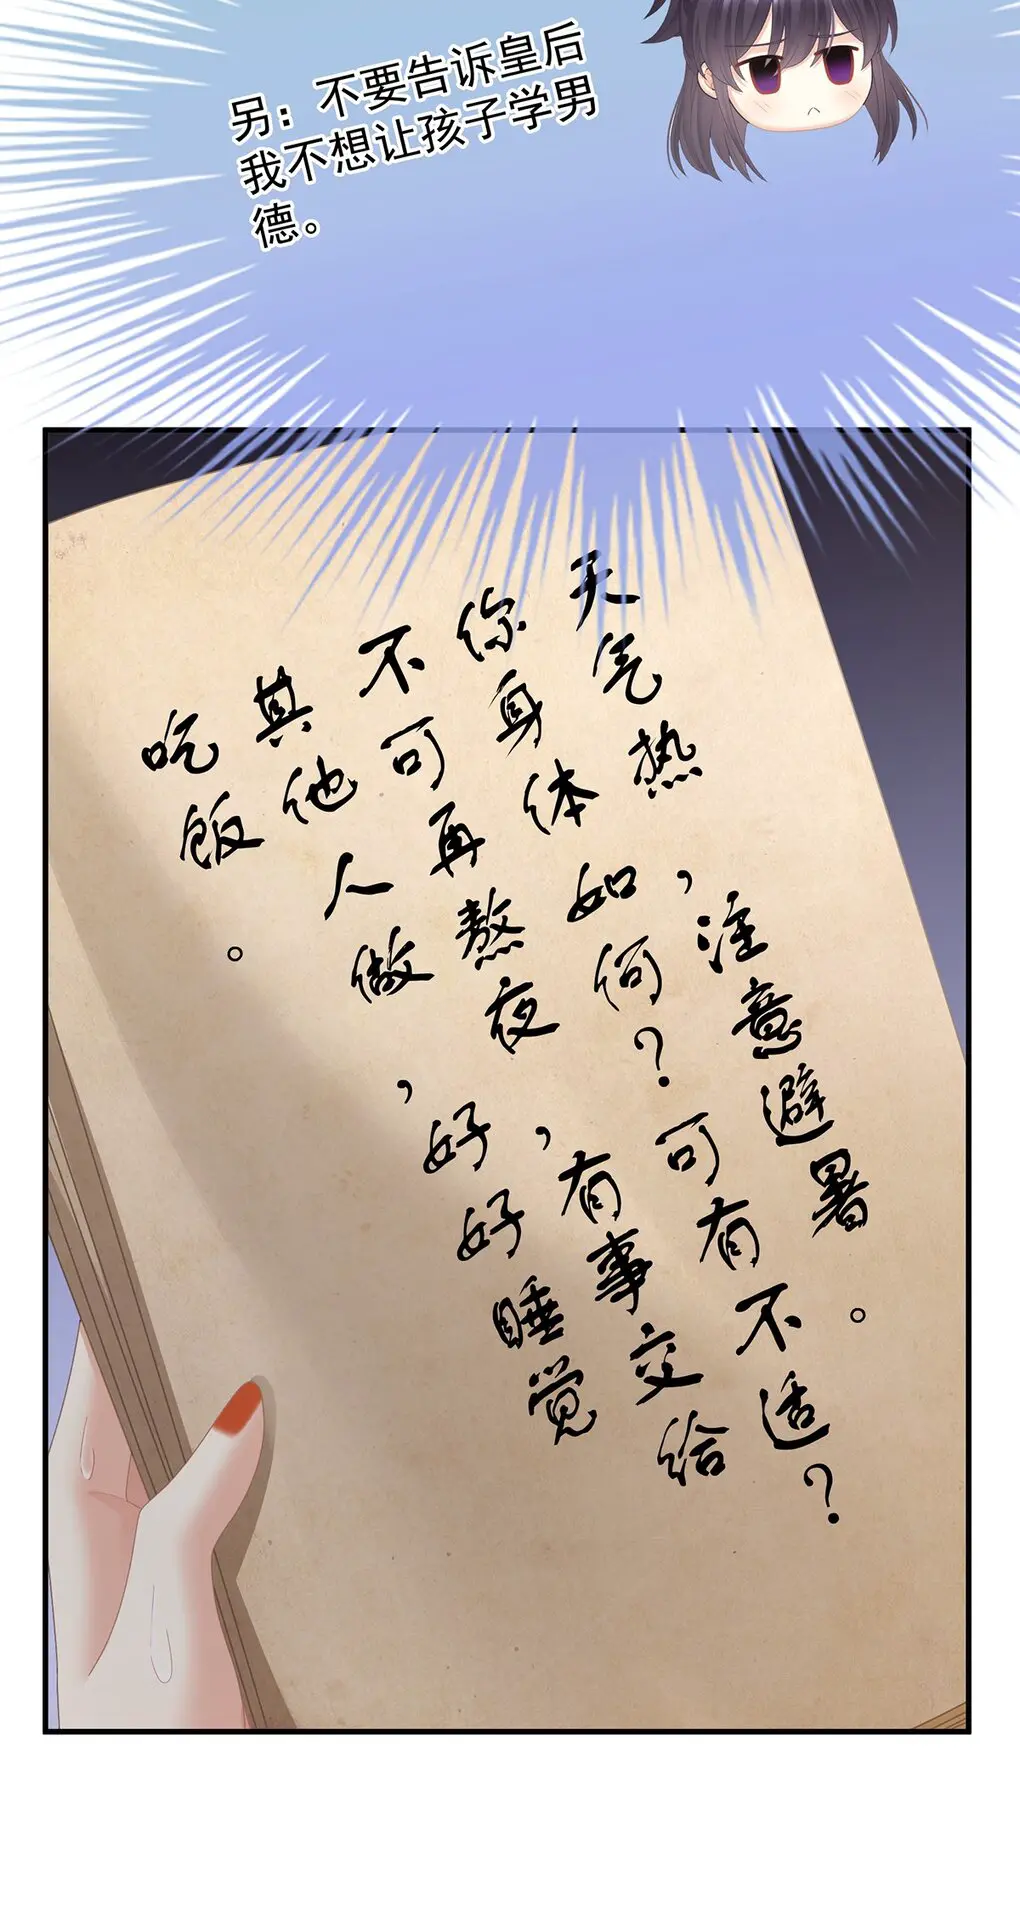 另：不要告诉皇后
我不想让孩子学男
德。
天气热，注意避暑。
你身体如何？可有不适？
不可再熬夜，有事交给
其他人做，好好睡觉
吃饭。